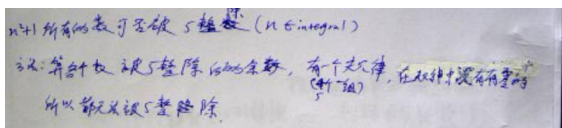 n²+1 所有的数可否被 5 整除 (n ∈ integral)
方法: 算每个数被5整除后的余数, 有一个规律, 在规律中没有有零的
(5个一组)
所以都不能被5整除.